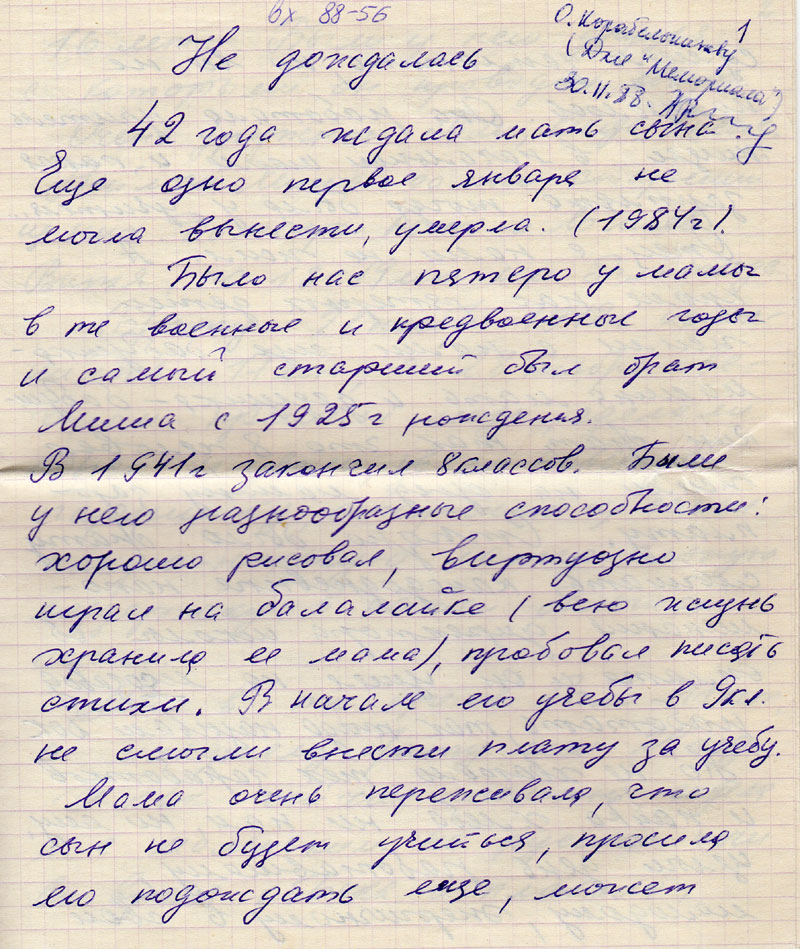 вх 88-56
1
О. Корабельникову
(Для "Мемориала")
30.11.88.
Не дождалась
42 года ждала мать сына.
Еще одно первое января не
могла вынести, умерла. (1984г).
Было нас пятеро у мамы
в те военные и предвоенные годы
и самый старший был брат
Миша с 1925г рождения.
В 1941г закончил 8классов. Были
у него разнообразные способности:
хорошо рисовал, виртуозно
играл на балалайке (всю жизнь
хранила ее мама), пробовал писать
стихи. В начале его учебы в 9кл.
не смогли внести плату за учебу.
Мама очень переживала, что
сын не будет учиться, просила
его подождать еще, может